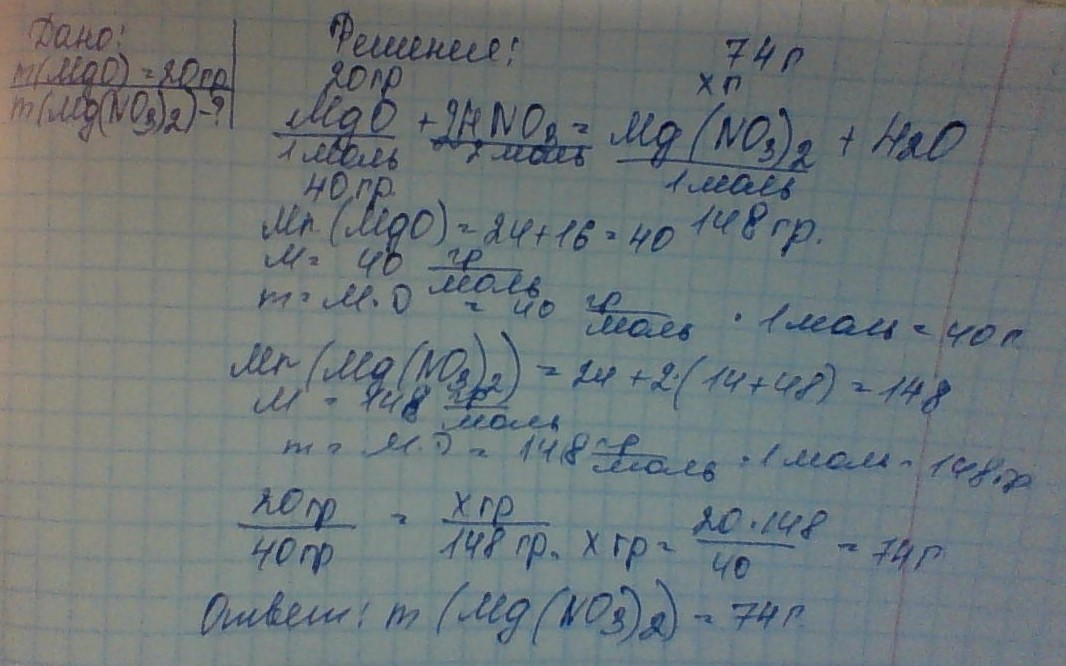 Дано:
m(MgO) = 20гр
m(Mg(NO3)2)-?
Решение:
74г
20гр
хг
MgO + 2HNO3 = Mg(NO3)2 + H2O
1моль 2моль 1моль
40гр. 148гр.
Mr (MgO) = 24+16 = 40
M = 40 гр/моль
m = M·υ = 40 гр/моль · 1моль = 40г
Mr(Mg(NO3)2) = 24+2·(14+48) = 148
M = 148 гр/моль
m = M·υ = 148 гр/моль · 1моль = 148гр
20гр/40гр = хгр/148гр. хгр = 20·148/40 = 74г
Ответ: m (Mg(NO3)2) = 74г